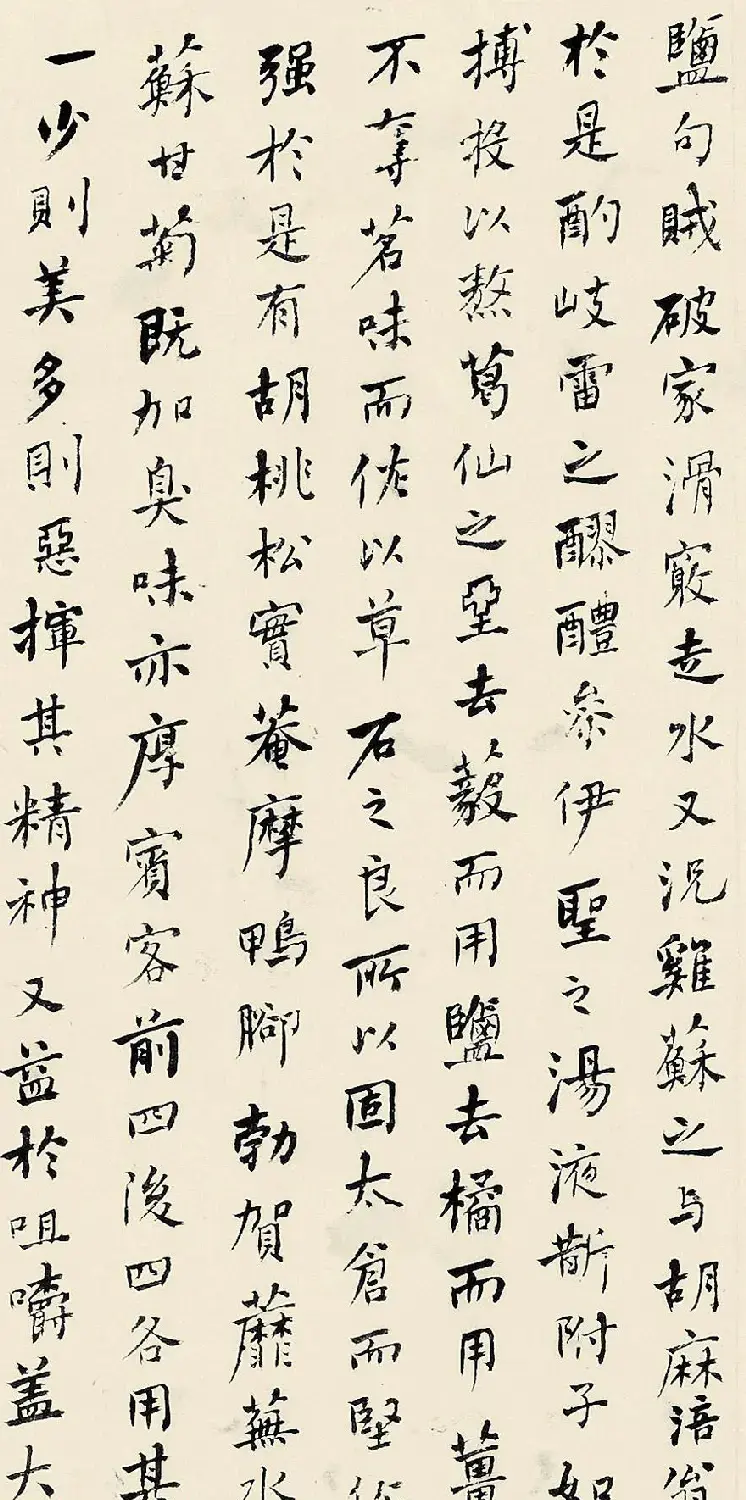 鹽句賊破家滑竅走水又況雞蘇之与胡麻涪翁
於是酌岐雷之醪醴參伊聖之湯液斮附子如
搏投以熬葛仙之堊去藙而用鹽去橘而用薑
不奪茗味而佐以草石之良所以固太倉而堅作
强於是有胡桃松實菴摩鴨腳勃賀蘼蕪水
蘇甘菊既加臭味亦厚賓客前四後四各用其
一少則美多則惡揮其精神又益於咀嚼盖大